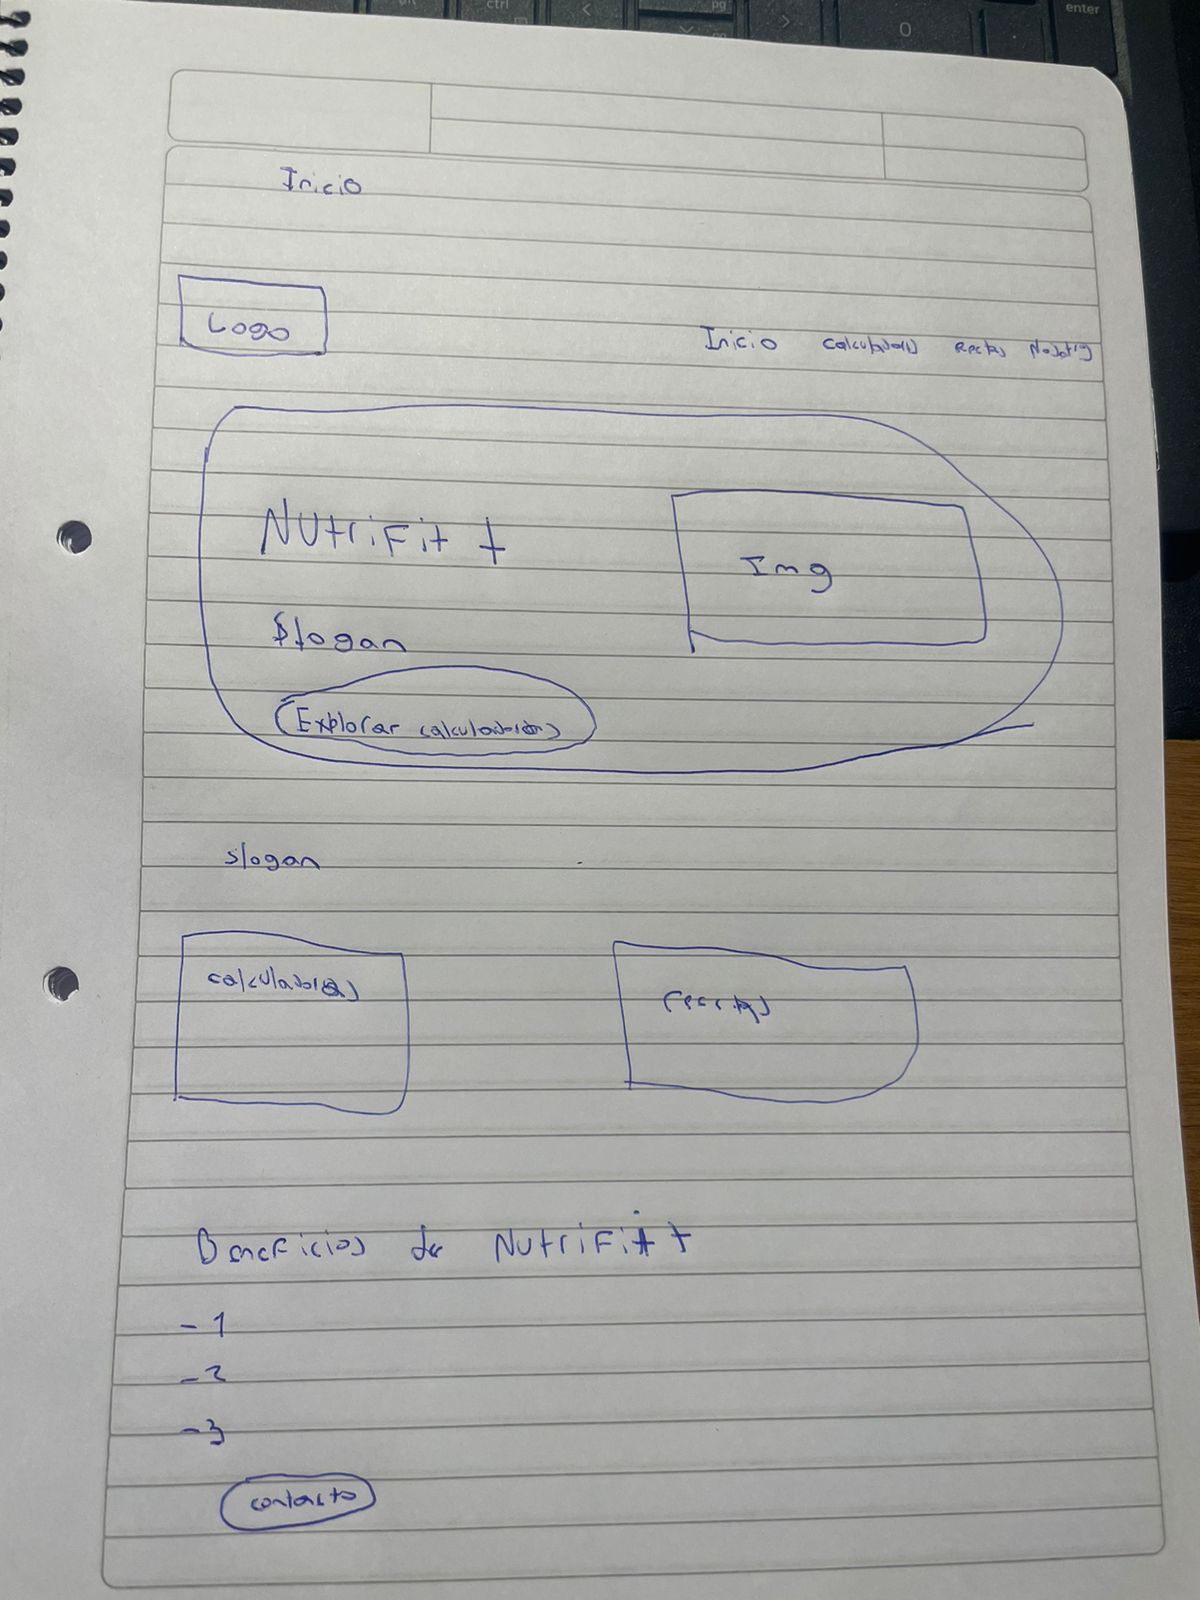 ctrl
<
pg
>
0
enter
Inicio
Logo
Inicio calculadoras
NutriFit +
Img
Slogan
Explorar calculadoras
slogan
calculadoras
recetas
Beneficios de NutriFit +
- 1
- 2
- 3
contacto